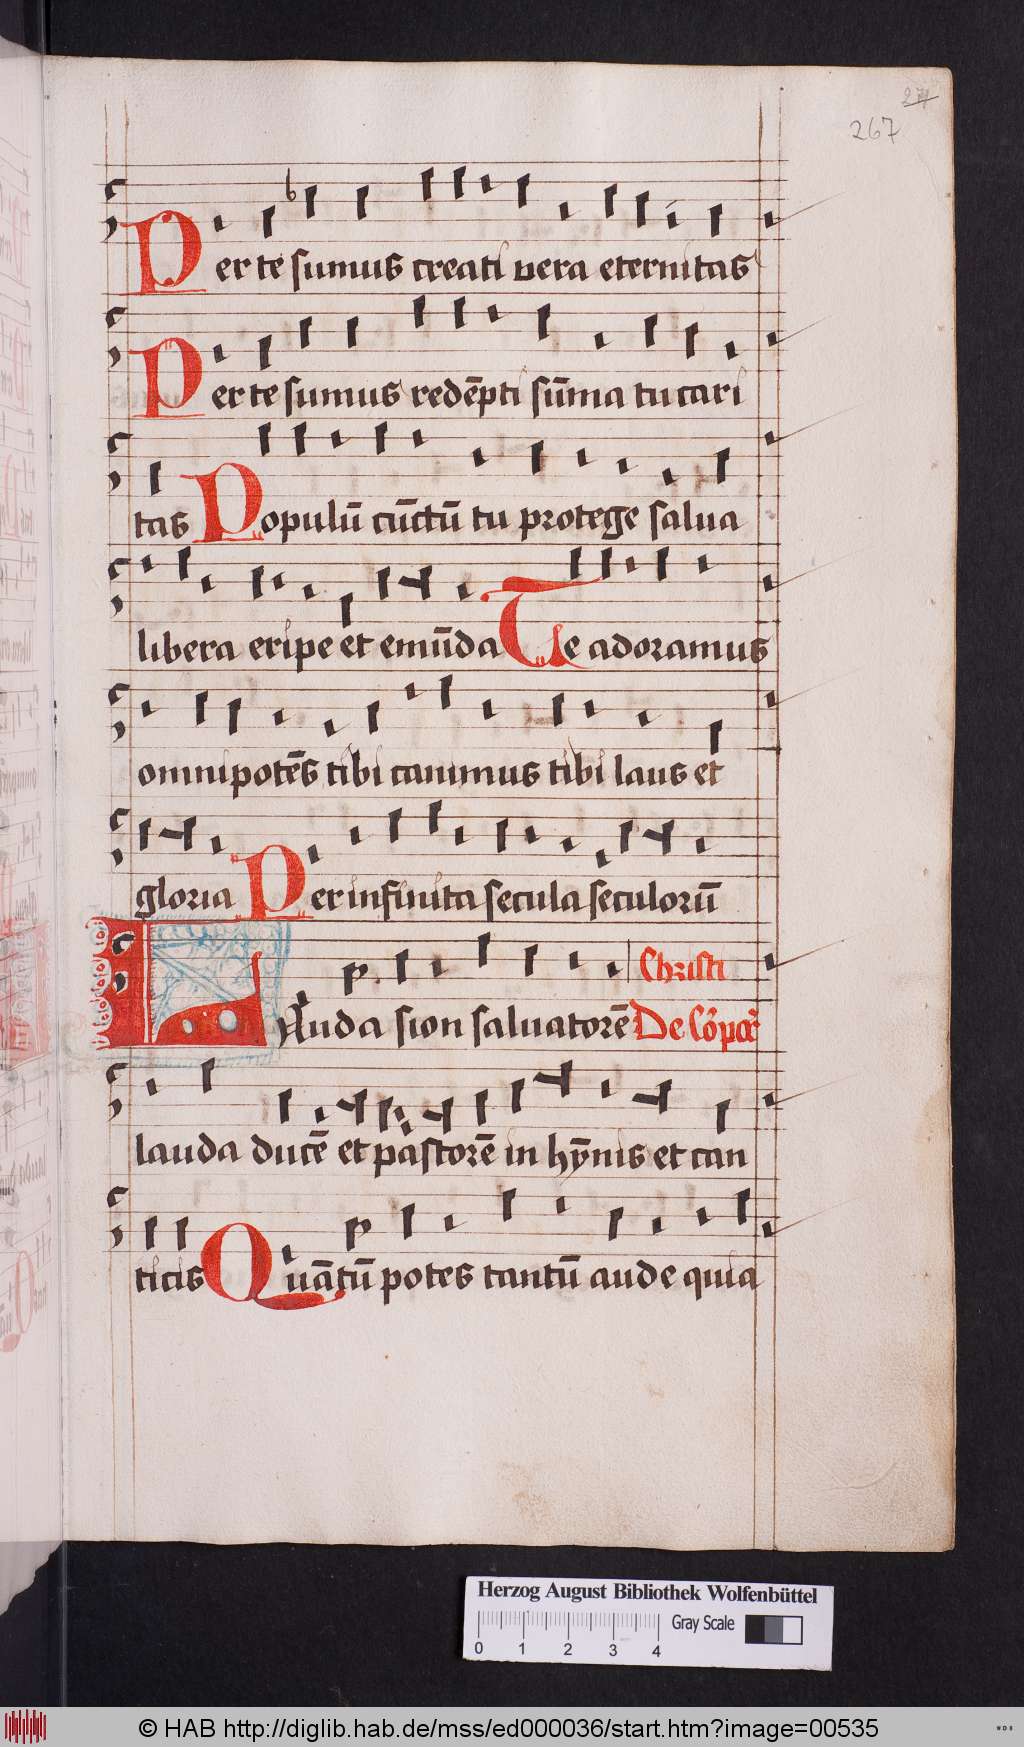 267
Per te sumus creati vera eternitas
Per te sumus redēpti sūma tu cari
tas Populū cūctū tu protege salua
libera eripe et emūda Te adoramus
omnipotēs tibi canimus tibi laus et
gloria Per infinita secula seculorū
Christi
LAuda sion saluatorē De
lauda ducē et pastorē in hȳnis et can
ticis Quātū potes tantū aude quia
Herzog August Bibliothek Wolfenbüttel
Gray Scale
0 1 2 3 4
© HAB http://diglib.hab.de/mss/ed000036/start.htm?image=00535